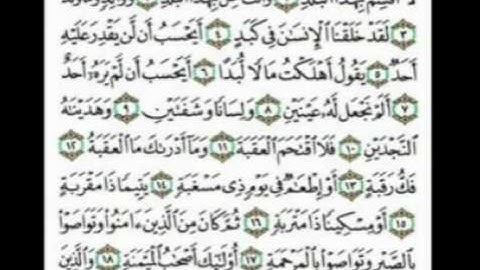 أُقْسِمُ بِهَٰذَا ٱلْبَلَدِ ١ وَأَنتَ حِلٌّۢ بِهَٰذَا ٱلْبَلَدِ ٢ وَوَالِدٍ وَمَا وَلَدَ
٣ لَقَدْ خَلَقْنَا ٱلْإِنسَٰنَ فِى كَبَدٍ ٤ أَيَحْسَبُ أَن لَّن يَقْدِرَ عَلَيْهِ
أَحَدٌ ٥ يَقُولُ أَهْلَكْتُ مَالًا لُّبَدًا ٦ أَيَحْسَبُ أَن لَّمْ يَرَهُۥٓ أَحَدٌ
٧ أَلَمْ نَجْعَل لَّهُۥ عَيْنَيْنِ ٨ وَلِسَانًا وَشَفَتَيْنِ ٩ وَهَدَيْنَٰهُ
ٱلنَّجْدَيْنِ ١٠ فَلَا ٱقْتَحَمَ ٱلْعَقَبَةَ ١١ وَمَآ أَدْرَىٰكَ مَا ٱلْعَقَبَةُ ١٢
فَكُّ رَقَبَةٍ ١٣ أَوْ إِطْعَٰمٌ فِى يَوْمٍ ذِى مَسْغَبَةٍ ١٤ يَتِيمًا ذَا مَقْرَبَةٍ
١٥ أَوْ مِسْكِينًا ذَا مَتْرَبَةٍ ١٦ ثُمَّ كَانَ مِنَ ٱلَّذِينَ ءَامَنُوا۟ وَتَوَاصَوْا۟
بِٱلصَّبْرِ وَتَوَاصَوْا۟ بِٱلْمَرْحَمَةِ ١٧ أُو۟لَٰٓئِكَ أَصْحَٰبُ ٱلْمَيْمَنَةِ ١٨ وَٱلَّذِينَ